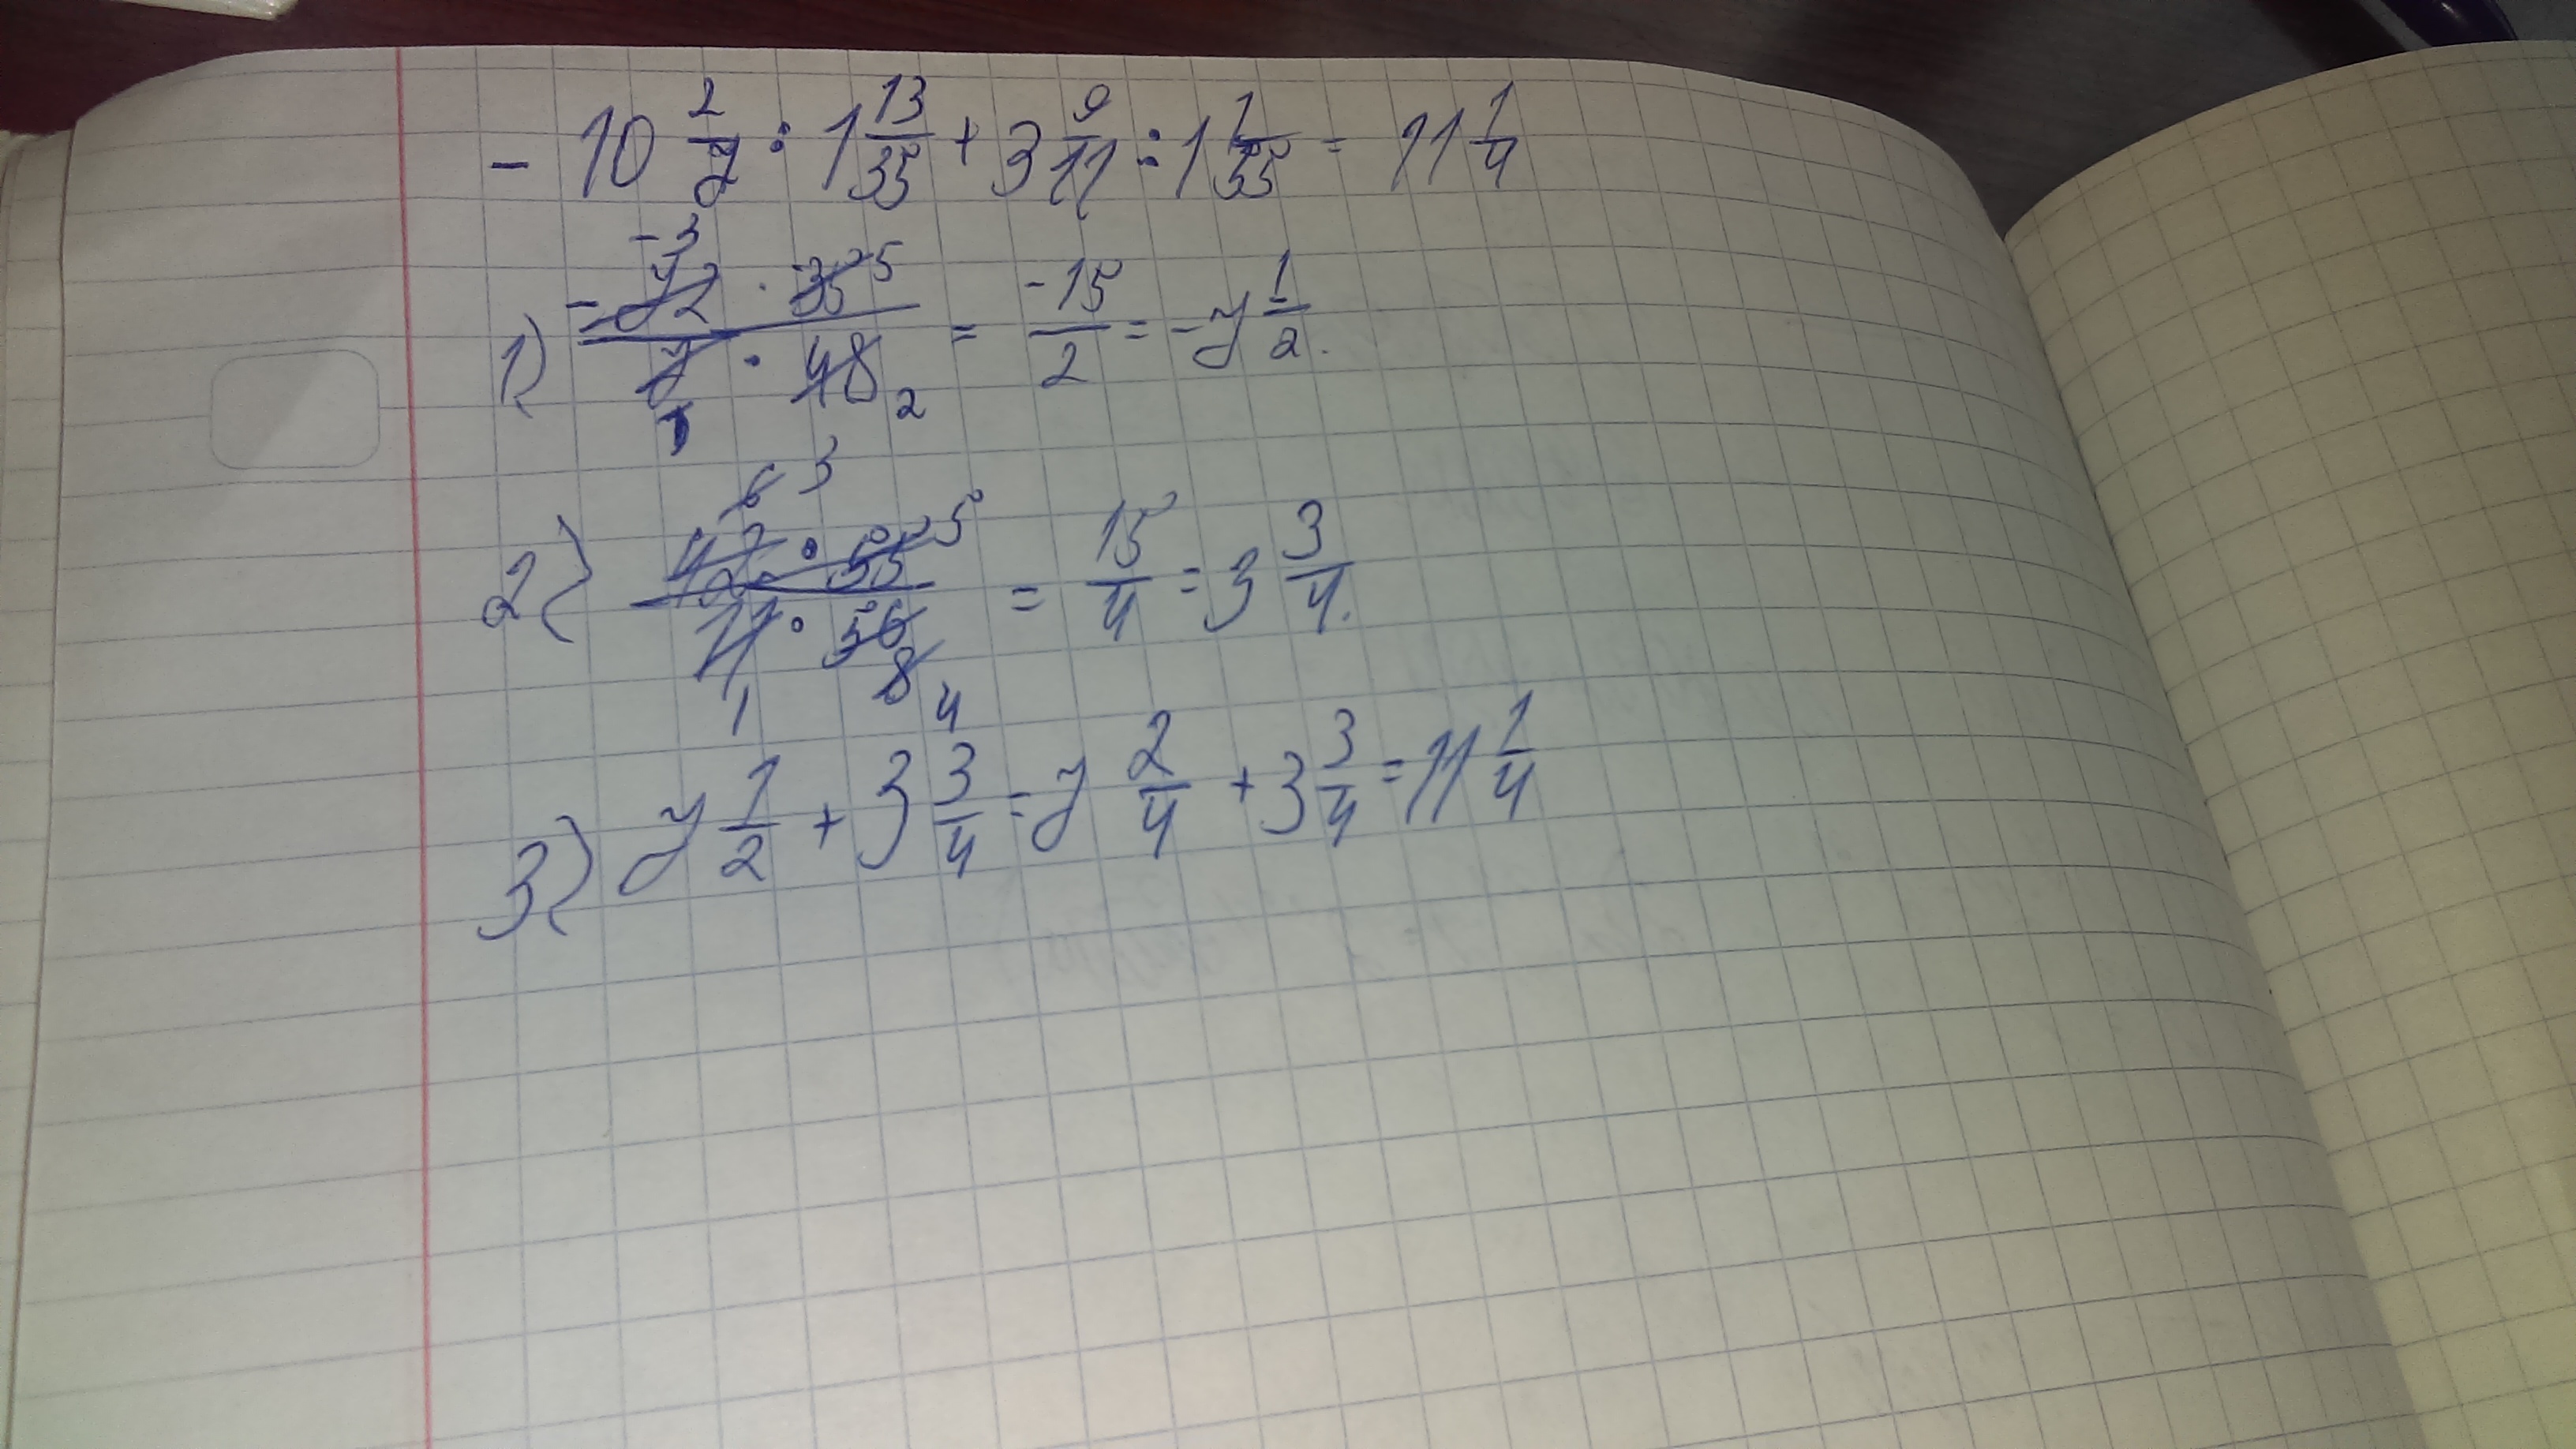 - 10 2/7 : 1 13/35 + 3 9/11 : 1 1/55 = 11 1/4
1) -72 -3 · 35 5 / 7 1 · 48 2 = -15/2 = -7 1/2.
2) 42 6 3 · 55 5 / 11 1 · 56 8 4 = 15/4 = 3 3/4.
3) 7 1/2 + 3 3/4 = 7 2/4 + 3 3/4 = 11 1/4